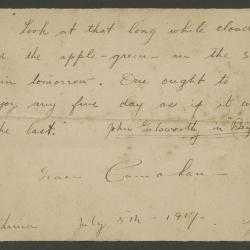 Look at that long white cloud
d the apple-green - in the s
in tomorrow. One ought to
joy any fine day as if it w
he last." John Galsworthy in "Bey
Grace Carnahan -
China July 5th - 1919.